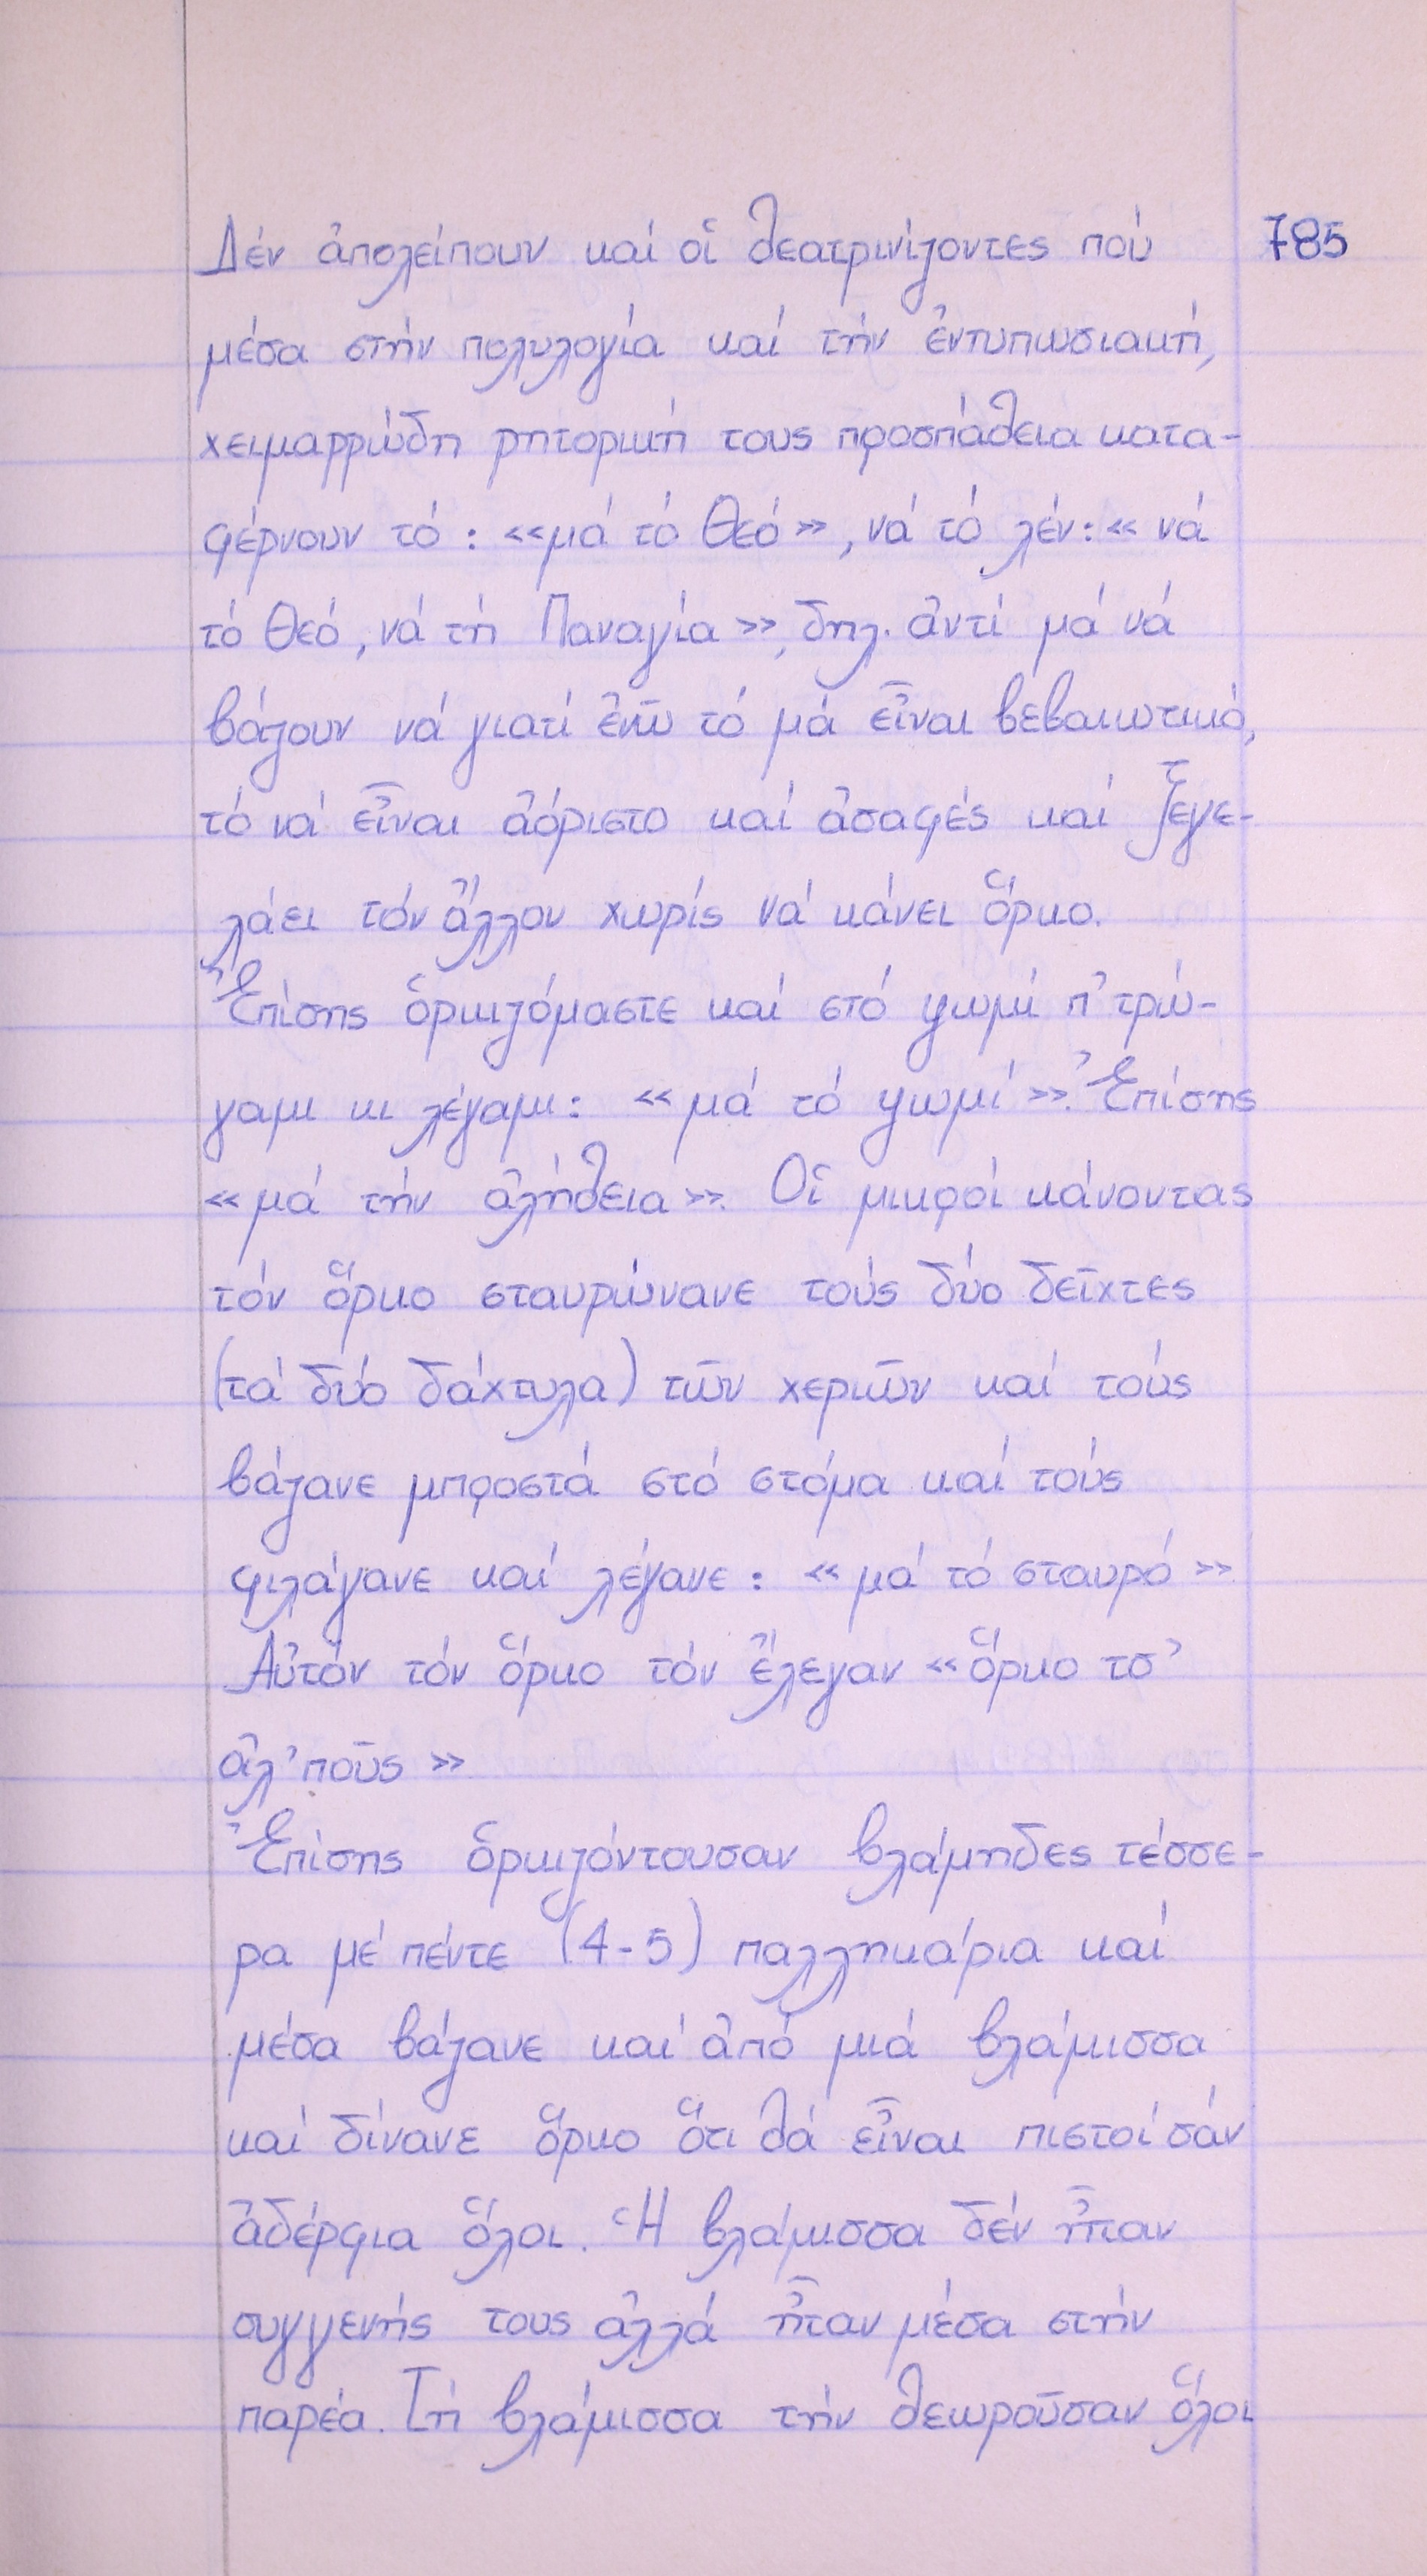 Δέν ἀπολείπουν καί οἱ θεατρινίζοντες πού 785
μέσα στήν πολυλογία καί τήν ἐντυπωσιακή,
χειμαρρώδη ρητορική τους προσπάθεια κατα-
φέρνουν τό: «μά τό Θεό», νά τό λέν: « νά
τό Θεό, νά τή Παναγία», δηλ. ἀντί μά νά
βάζουν νά γιατί ἐνῶ τό μά εἶναι βεβαιωτικό,
τό νά εἶναι ἀόριστο καί ἀσαφές καί ξεγε-
λάει τόν ἄλλον χωρίς νά κάνει ὅρκο.
Ἐπίσης ὁρκιζόμαστε καί στό ψωμί π' τρώ-
γαμι κι λέγαμι: «μά τό ψωμί». Ἐπίσης
«μά τήν ἀλήθεια». Οἱ μικροί κάνοντας
τόν ὅρκο σταυρώνανε τούς δύο δεῖχτες
(τά δύο δάχτυλα) τῶν χεριῶν καί τούς
βάζανε μπροστά στό στόμα καί τούς
φιλάγανε καί λέγανε: «μά τό σταυρό»
Αὐτόν τόν ὅρκο τόν ἔλεγαν «ὅρκο τσ'
ἀλ'ποῦς»
Ἐπίσης ὁρκιζόντουσαν βλάμηδες τέσσε-
ρα μέ πέντε (4-5) παλληκάρια καί
μέσα βάζανε καί ἀπό μιά βλάμισσα
καί δίνανε ὅρκο ὅτι θά εἶναι πιστοί σάν
ἀδέρφια ὅλοι. Ἡ βλάμισσα δέν ἦταν
συγγενής τους ἀλλά ἦταν μέσα στήν
παρέα. Τή βλάμισσα τήν θεωροῦσαν ὅλοι